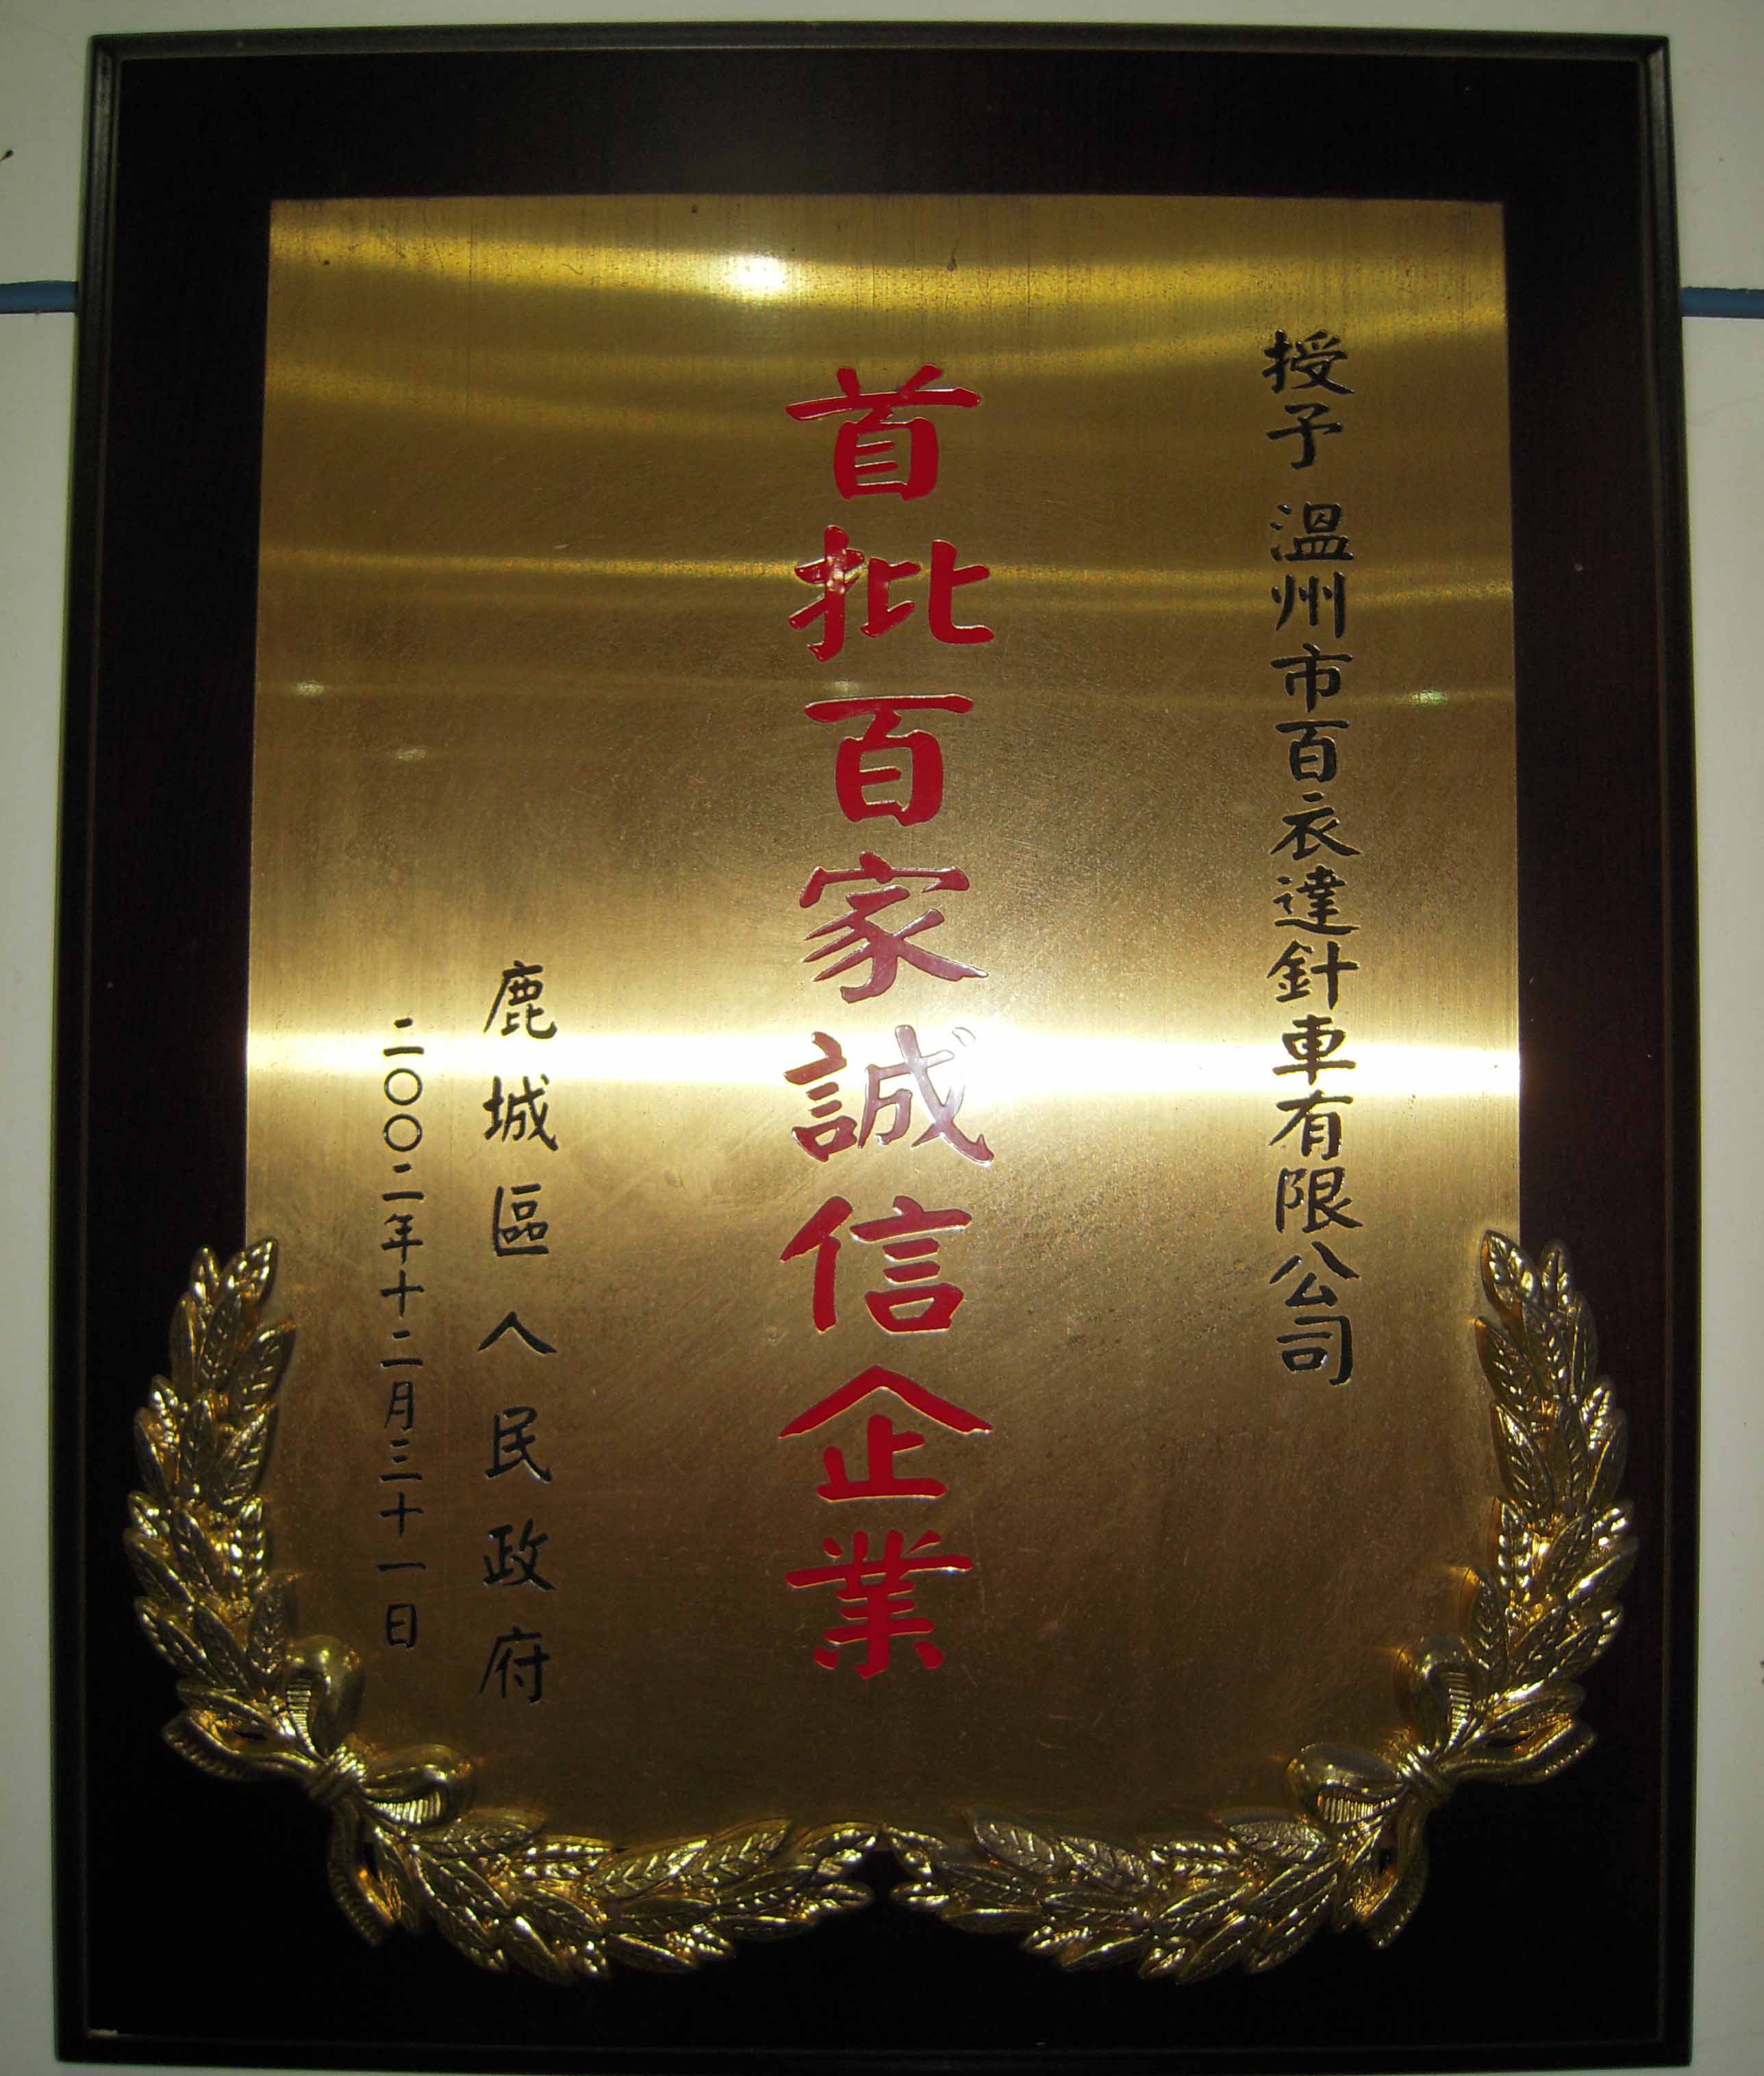 授予 溫州市百衣達針車有限公司
首批百家誠信企業
鹿城區人民政府
二〇〇二年十二月三十一日